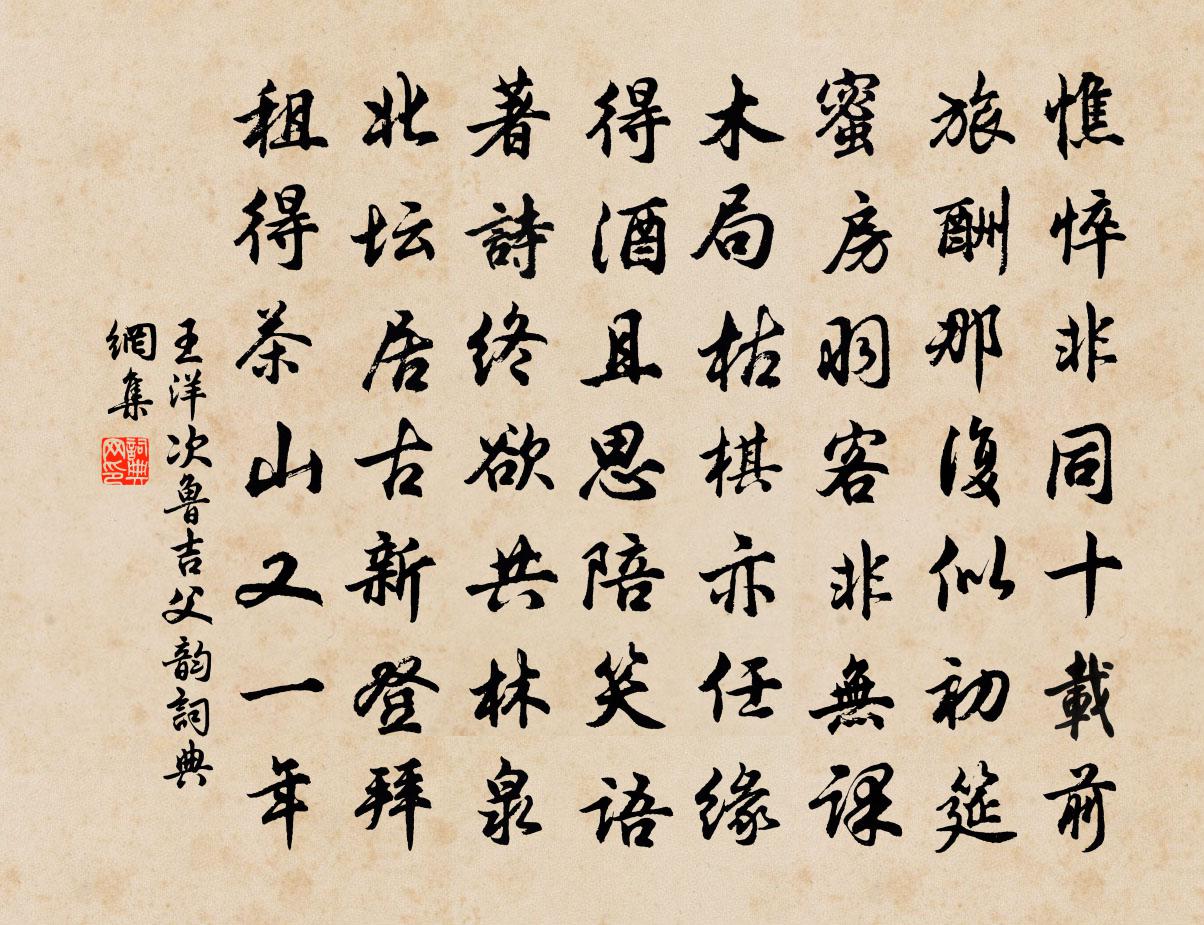 憔悴非同十載前
旅酬那復似初筵
蜜房羽客非無课
木局枯棋亦任缘
得酒且思陪笑语
著詩终欲共林泉
北坛居古新登拜
租得茶山又一年
王洋次魯吉父韵詞典
網集
詞典网印